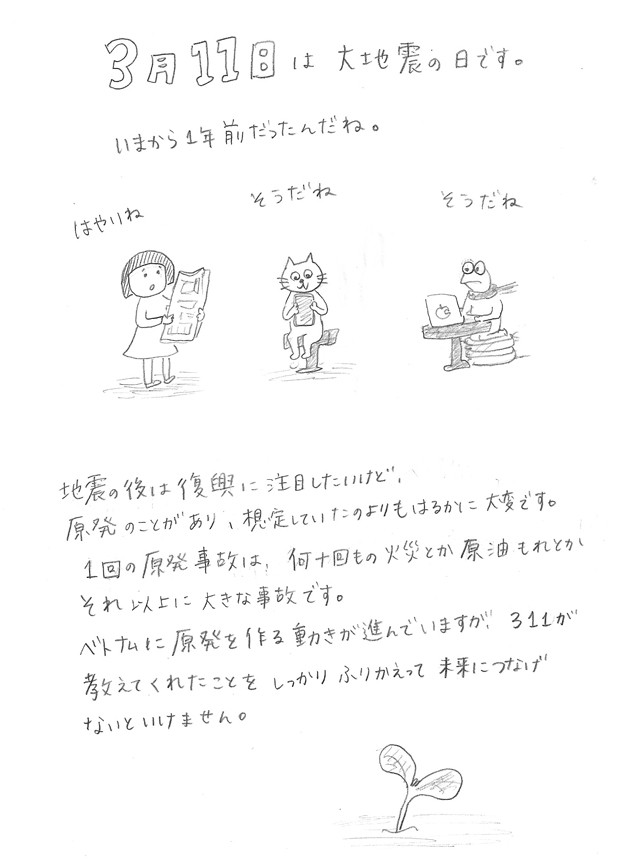 3月11日は大地震の日です。
いまから1年前だったんだね。
はやいね
そうだね
そうだね
地震の後は復興に注目したいけど、
原発のことがあり、想定していたのよりもはるかに大変です。
1回の原発事故は、何十回もの火災とか原油もれとか
それ以上に大きな事故です。
ベトナムに原発を作る動きが進んでいますが、311が
教えてくれたことをしっかりふりかえって未来につなげ
ないといけません。